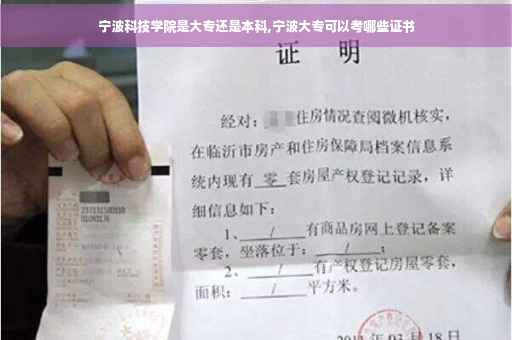 宁波科技学院是大专还是本科,宁波大专可以考哪些证书
证 明
经对: 住房情况查阅微机核实,
在临沂市房产和住房保障局档案信息系
统内现有 零 套房屋产权登记记录，详
细信息如下:
1、 / 有商品房网上登记备案
零套，坐落位于: / ;
2、 / 有产权登记房屋零套，
面积: / 平方米。
月18日